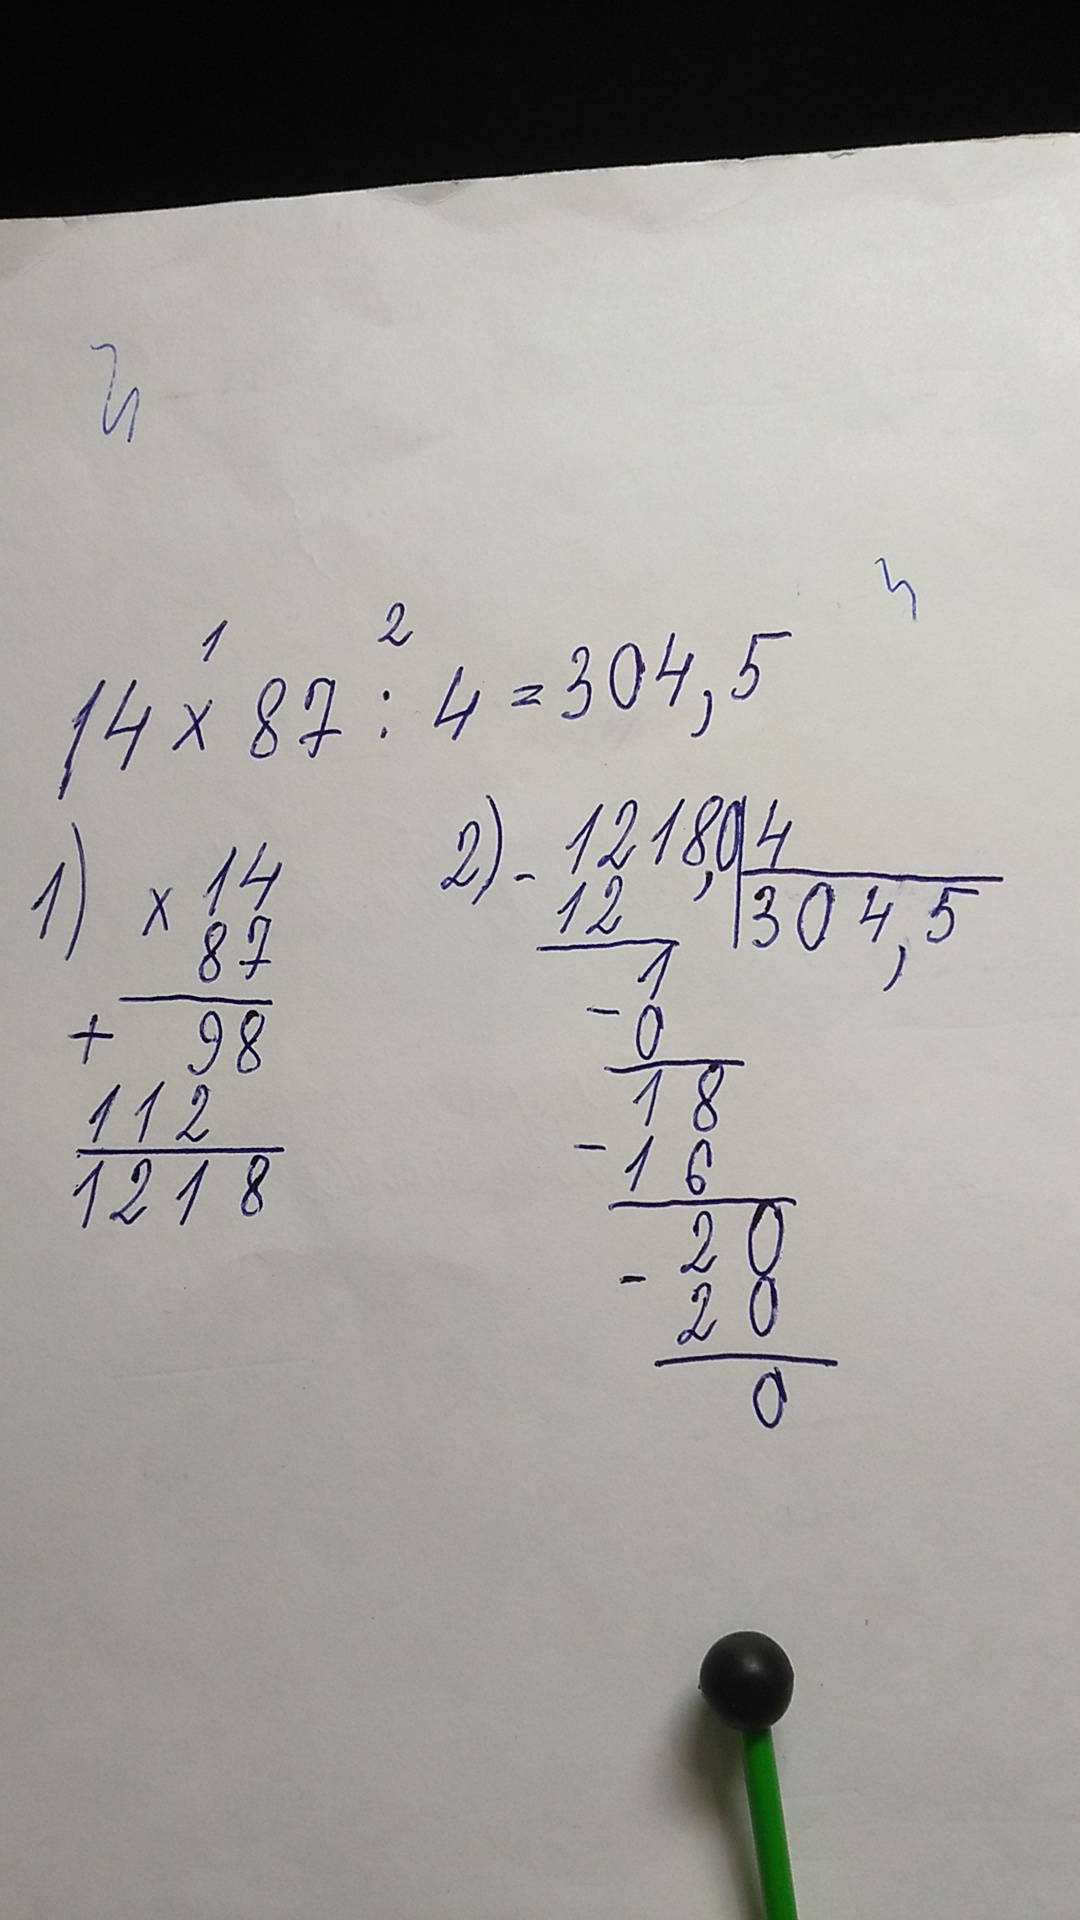 1 2
14 x 87 : 4 = 304,5
1) x 14
87
+ 98
112
1218
2) - 1218,0 4
12 304,5
1
- 0
18
- 16
20
- 20
0